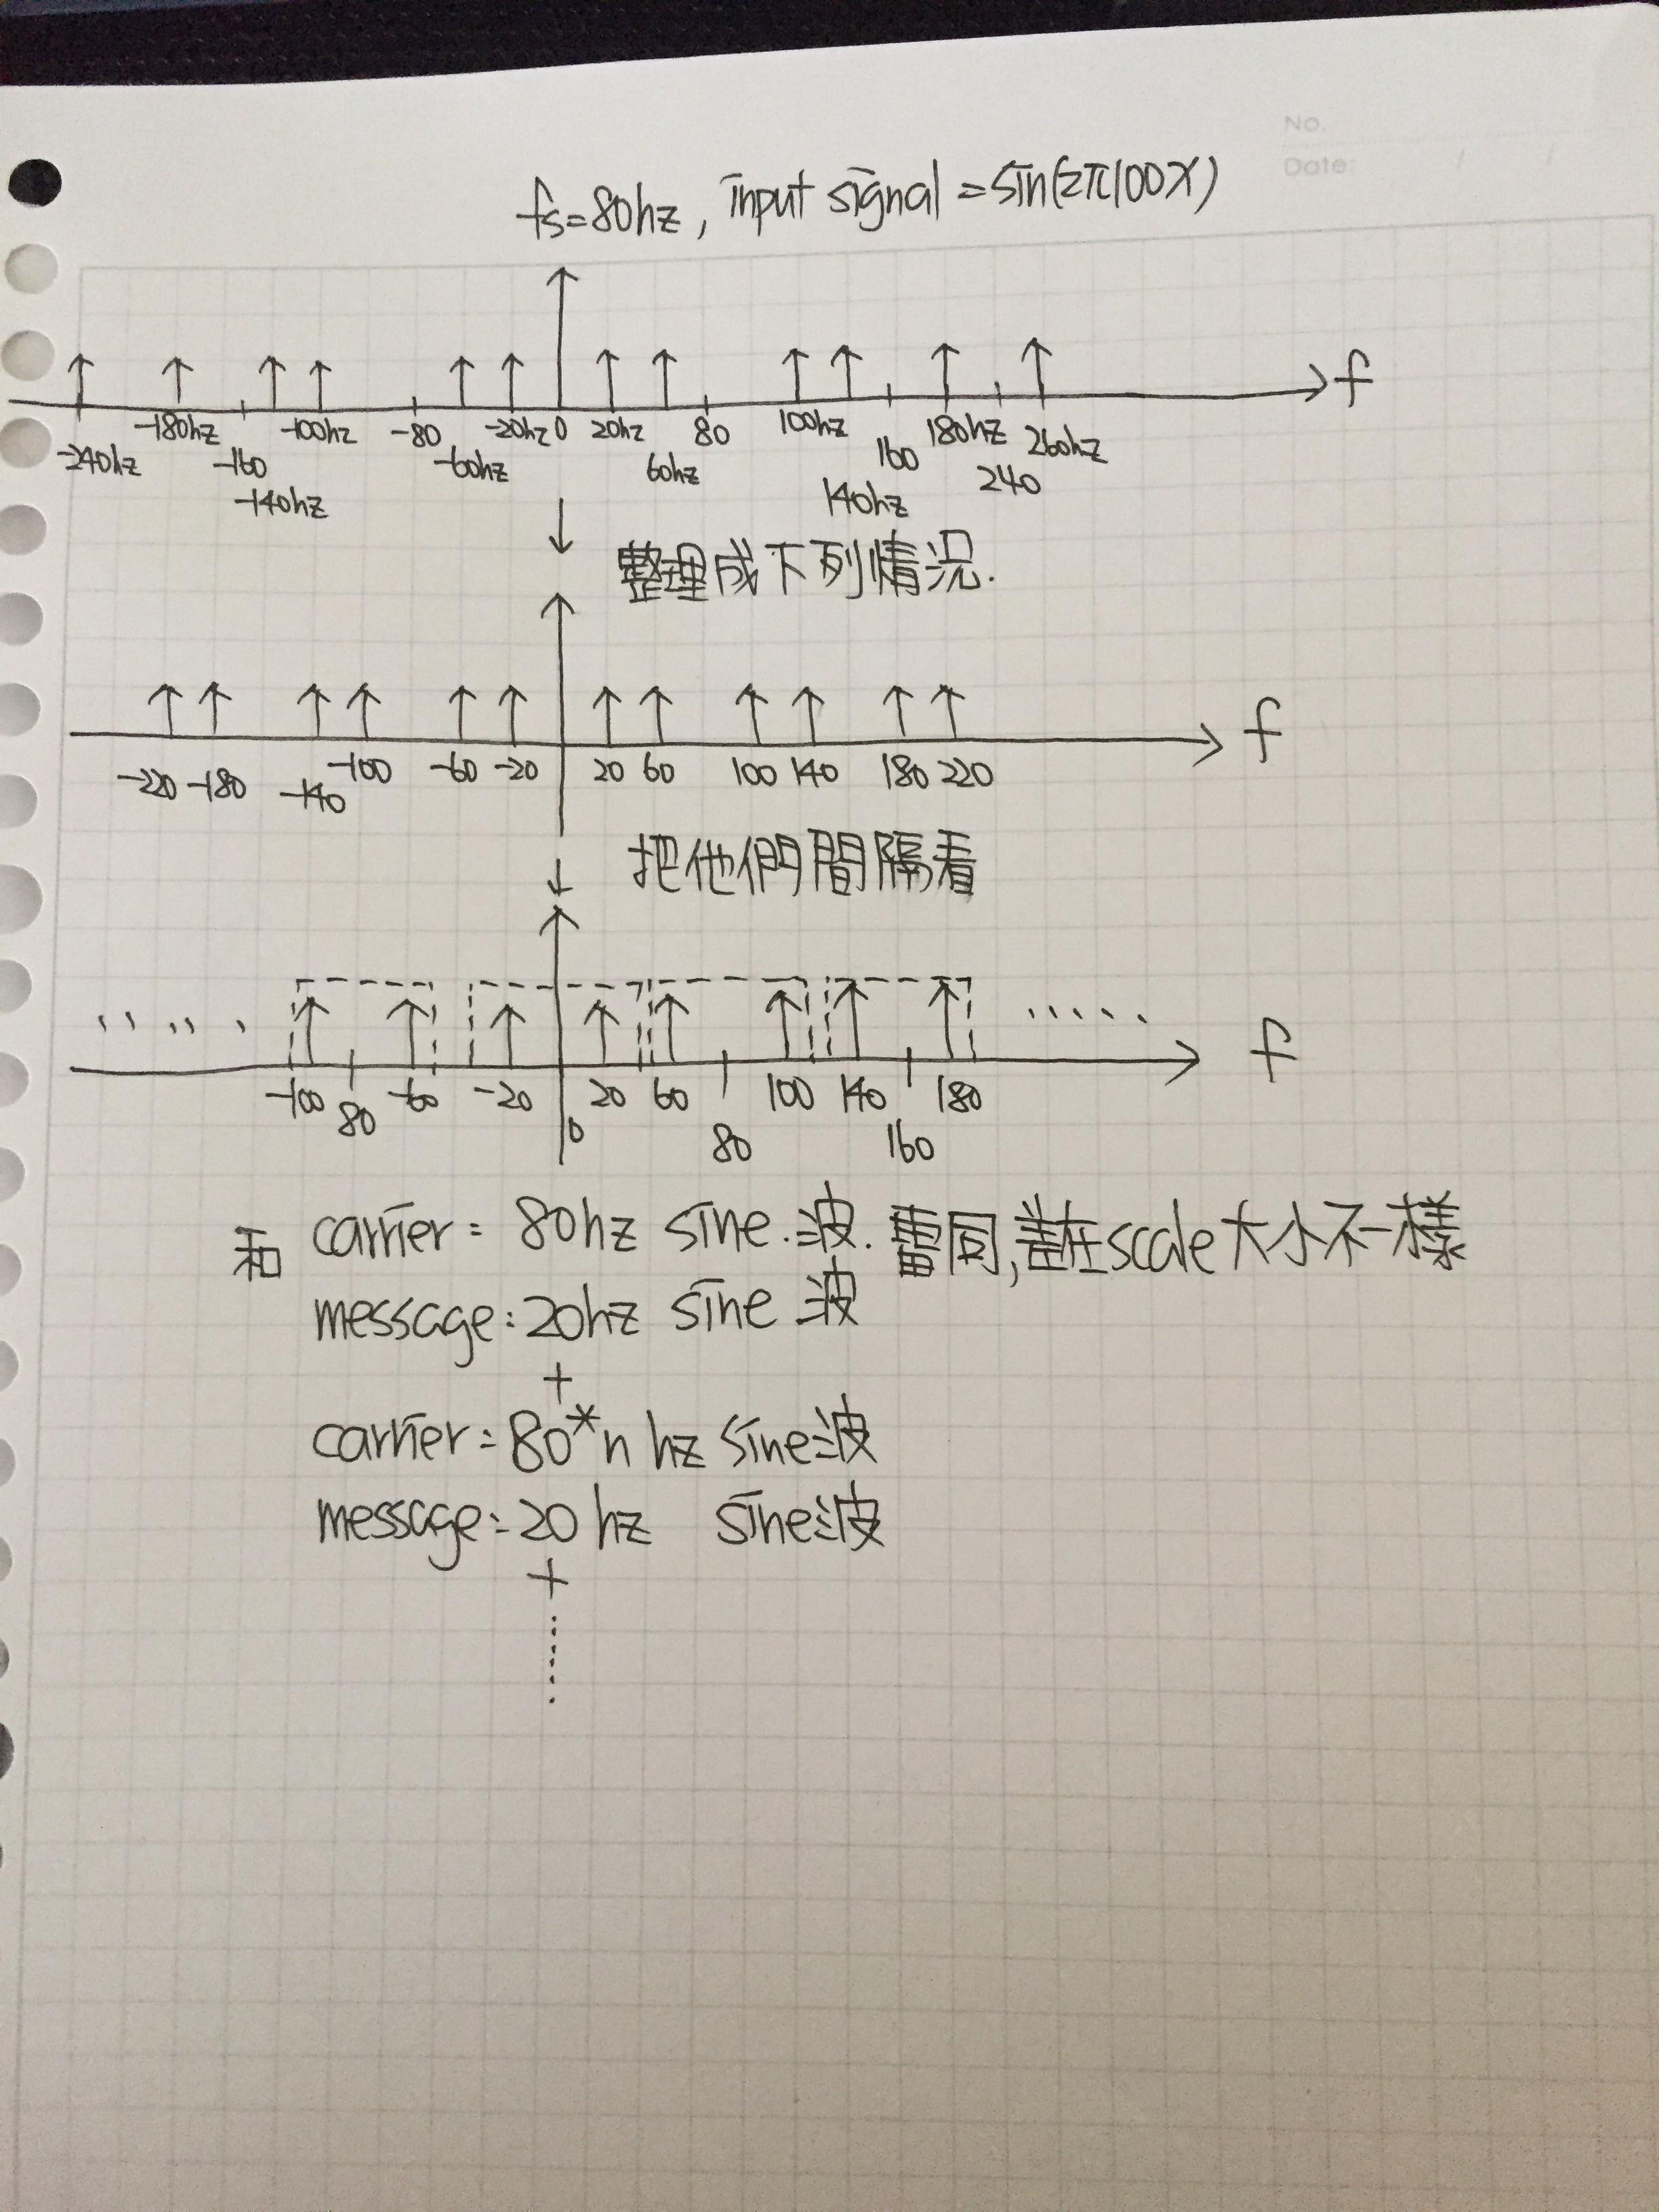 No.
Date: / /
fs=80hz, input signal =sin(2π100x)
f
-240hz -180hz -160 -140hz -100hz -80 -60hz -20hz 0 20hz 60hz 80 100hz 140hz 160 180hz 240 260hz
整理成下列情況.
f
-220 -180 -140 -100 -60 -20 20 60 100 140 180 220
把他們間隔看
..... .....
f
-100 80 -60 -20 0 20 60 80 100 140 160 180
和 carrier = 80hz sine.波. 雷同,差在scale大小不一樣
message: 20hz sine 波
+
carrier = 80*n hz sine波
message: 20 hz sine波
+
......